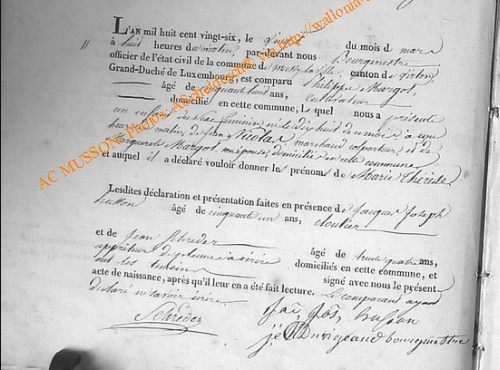 11
L'AN mil huit cent vingt-six, le quinze du mois de mars
à huit heures du matin, par-devant nous Bourgmestre
officier de l'état civil de la commune de Mussy la ville, canton de Virton,
Grand-Duché de Luxembourg, est comparu Philippe Margot,
âgé de cinquante huit ans, cultivateur
domicilié en cette commune, Le quel nous a présenté
un enfant du sexe féminin né le dix huit de ce mois à
heures du matin, de Jean Nicolas marchand colporteur, et de
Marguerite Margot ma épouse, domiciliés en cette commune
et auquel il a déclaré vouloir donner les prénoms de Marie Thérèse
Lesdites déclaration et présentation faites en présence de Jacques Joseph
husson âgé de cinquante un ans, cloutier
et de Jean Schreder âgé de trente quatre ans,
domiciliés en cette commune, et
ont les témoins signé avec nous le présent
acte de naissance, après qu'il leur en a été fait lecture. Le comparant ayant
déclaré ne savoir écrire
Schreder
Jac Jos husson
J. Duvigeaud bourgmestre
AC MUSSON, Photos: ACscheldoes@
http://wallonia